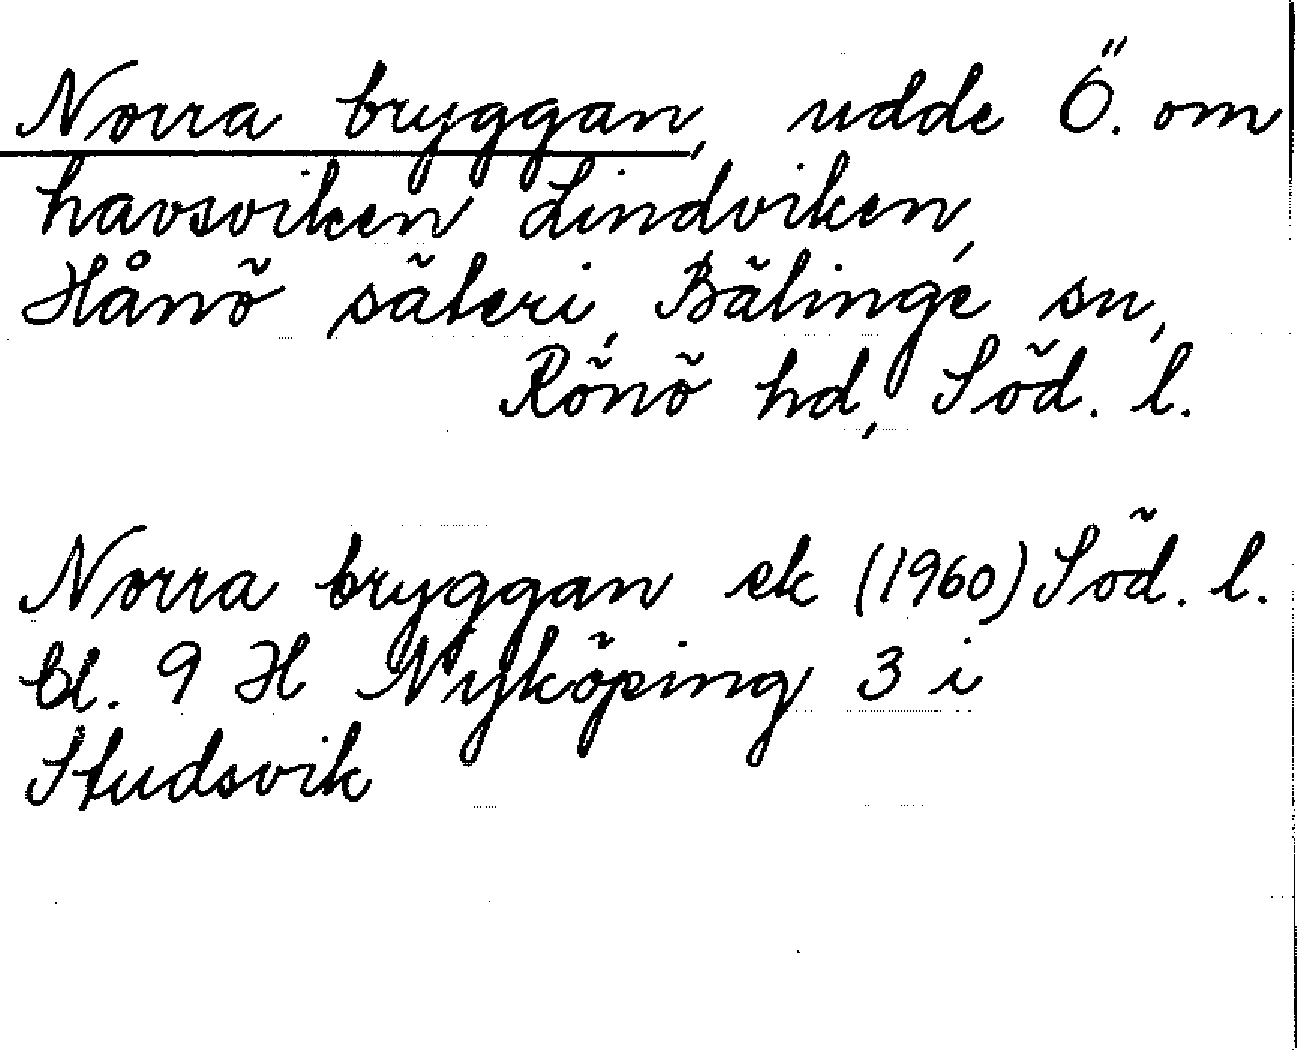 Norra bryggan, udde Ö. om
havsviken Lindviken,
Hånö säteri, Bälinge sn,
Rönö hd, Söd. l.
Norra bryggan ek (1960) Söd. l.
bl. 9 H Nyköping 3 i
Studsvik